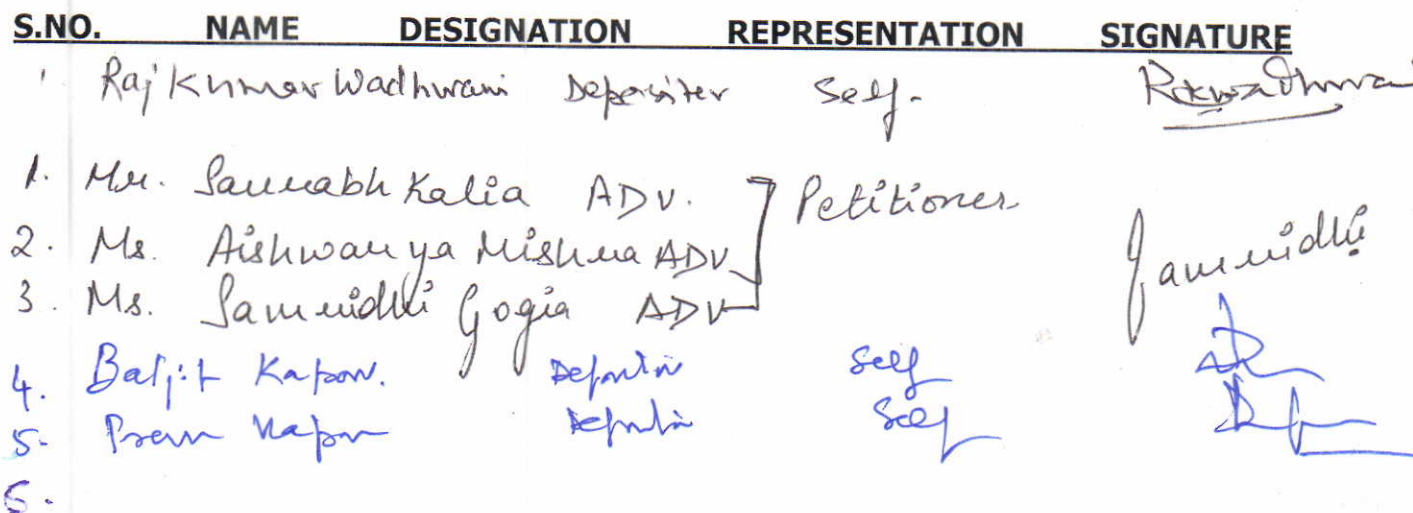 S.NO. NAME DESIGNATION REPRESENTATION SIGNATURE
1. Raj Kumar Wadhwani Depositer Self. Rkwadhwani
1. Mr. Saurabh Kalia ADV. Petitioner
2. Ms. Aishwarya Mishra ADV
3. Ms. Samridhi Gogia ADV Samridhi
4. Baljit Kapoor. Self
5. Prem Kapoor Self
6.